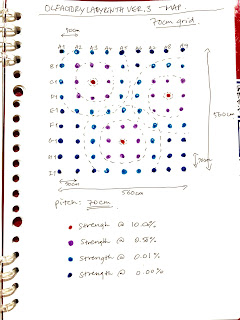 OLFACTORY LABYRINTH VER. 3 - MAP
70cm grid
A1 A2 A3 A4 A5 A6 A7 A8 A9
B1
C1
D1
E1
F1
G1
H1
I1
560cm
560cm
pitch: 70cm
strength @ 10.00%
strength @ 0.50%
strength @ 0.01%
strength @ 0.00%